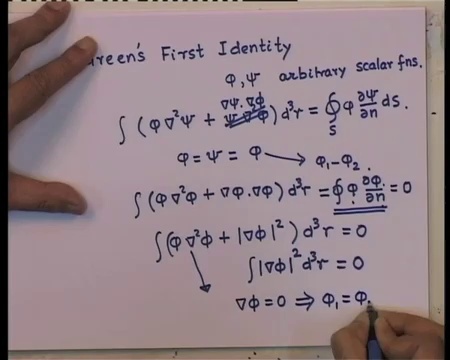 Green's First Identity
φ, ψ arbitrary scalar fns.
∇ψ.∇φ
∫ (φ∇²ψ + ) d³r = ∮ φ ∂ψ/∂n dS.
S
φ = ψ = φ → φ₁-φ₂.
∫ (φ∇²φ + ∇φ.∇φ) d³r = ∮ φ. ∂φ/∂n = 0
∫(φ∇²φ + |∇φ|²) d³r = 0
∫|∇φ|² d³r = 0
∇φ = 0 ⇒ φ₁ = φ